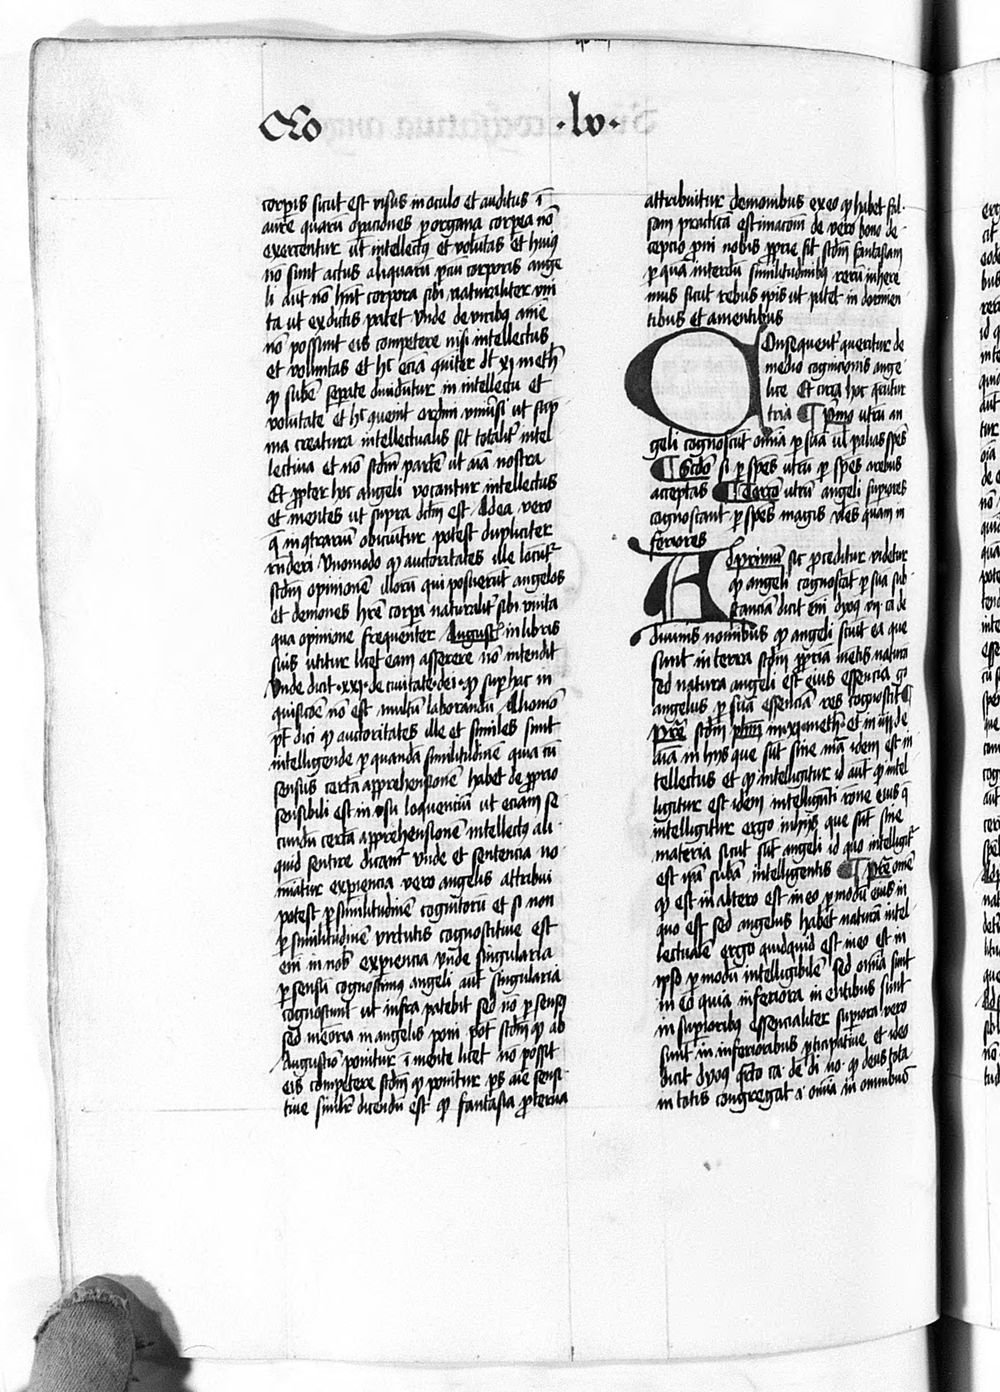 Qo · lv ·
corporis sicut est visus in oculo et auditus ī
aure quarū operaciones per organa corpea nō
exercentur ut intellectus et volūtas et huiꝰ
nō sunt actus aliquarū pciū corporis ange
li aut nō hñt corpora sibi naturaliter vni
ta ut ex dictis patet Vnde de viribꝰ anīe
nō possunt eis competere nisi intellectus
et voluntas et hc eciā dt xi meth
ꝙ subē sepate diuidūtur in intellectū et
volūtatē et hc ordini vniūsi ut sup
ma creatura intellectualis sit totalitr intel
lectiua et nō scdm partē ut aīa nostra
Et ppter hoc angeli vocantur intellectus
et mentes ut supra dcm est Ad ea vero
q̄ in ꝯtrariū obiciūtur potest dupliciter
rn̄deri Vnomodo ꝙ auctoritates ille locūt
scdm opinionē illorū qui posuerūt angelos
et demones hrē corpa naturalitr sibi vnita
qua opinione frequenter Augusti in libris
suis vtitur licet eam asserere nō intendit
Vnde dicit xxi de ciuitate dei ꝙ sup hac in
quisicōe nō est multū laborandū Alio mō
pt dici ꝙ auctoritates ille et similes sunt
intelligende per quandā similitudinē quia cū
sensus certā apprehensionē habet de pprio
sensibili est in vsu loquenciū ut eciam se
cundū certā apprehensionē intellectꝰ ali
quid sentire dicant Vnde et sentencia no
minatur expiencia vero angelis attribui
potest per similitudinē cognitorū et si non
per similitudinē virtutis cognoscitiue est
eī in nob expiencia vnde singularia
per sensū cognoscimꝰ angeli aut singularia
cognoscunt ut infra patebit sed nō per sensꝰ
sed mēoria in angelis poni pot scdm ꝙ ab
Augustīo ponitur ī mente licet nō possit
eis competere scdm ꝙ ponitur ps aīe sensi
tiue similr dicendū est ꝙ fantasia pterua
attribuitur demonibus ex eo ꝙ habēt fal
sam practicā estimacōm de vero bono de
cepcio in nobis pprie fit scdm fantasiam
per quā interdū similitudinibꝰ rerū inhere
mus sicut rebus ipis ut patet in dormien
tibus et amentibus
Consequenter queritur de
medio cognicionis ange
lice Et circa hoc qrūtur
tria ¶ Primo utrū an
geli cognoscūt omīa per suā vl per alias spēs
¶ Scdō si per spēs utrū per spēs a rebus
acceptas ¶ Tercō utrū angeli supiores
cognoscant per spēs magis vles quam in
feriores
Ad primū sic proceditur videtur
ꝙ angeli cognoscāt per suā sub
stanciā dicit enī dyoꝰ vii ca de
diuinis nominibus ꝙ angeli sciūt ea que
sunt in terra scdm ppriā mentis naturā
sed natura angeli est eius essencia g
angelus per suā essenciā res cognoscit ¶
Prē scdm phm in xi meth et in iii de
aīa in hys que sūt sine mā idem est in
tellectus et ꝙ intelligitur id aut ꝙ intel
ligitur est idem intelligēti rōne eius q̄
intelligitur ergo in hys que sūt sine
materia sicut sūt angeli id quo intelligit
est ipa subā intelligentis ¶ Prē omē
ꝙ est in altero est in eo per modū eius in
quo est sed angelus habet naturā intel
lectualē ergo quidquid est in eo est in
ipso per modū intelligibilē sed omīa sunt
in eo quia inferiora in entibus sunt
in supioribꝰ essencialiter supiora vero
sunt in inferioribus pticipatiue et ideo
dicit dyoꝰ qrto ca de di no ꝙ deus tota
in totis congregat i omīa in omnibus